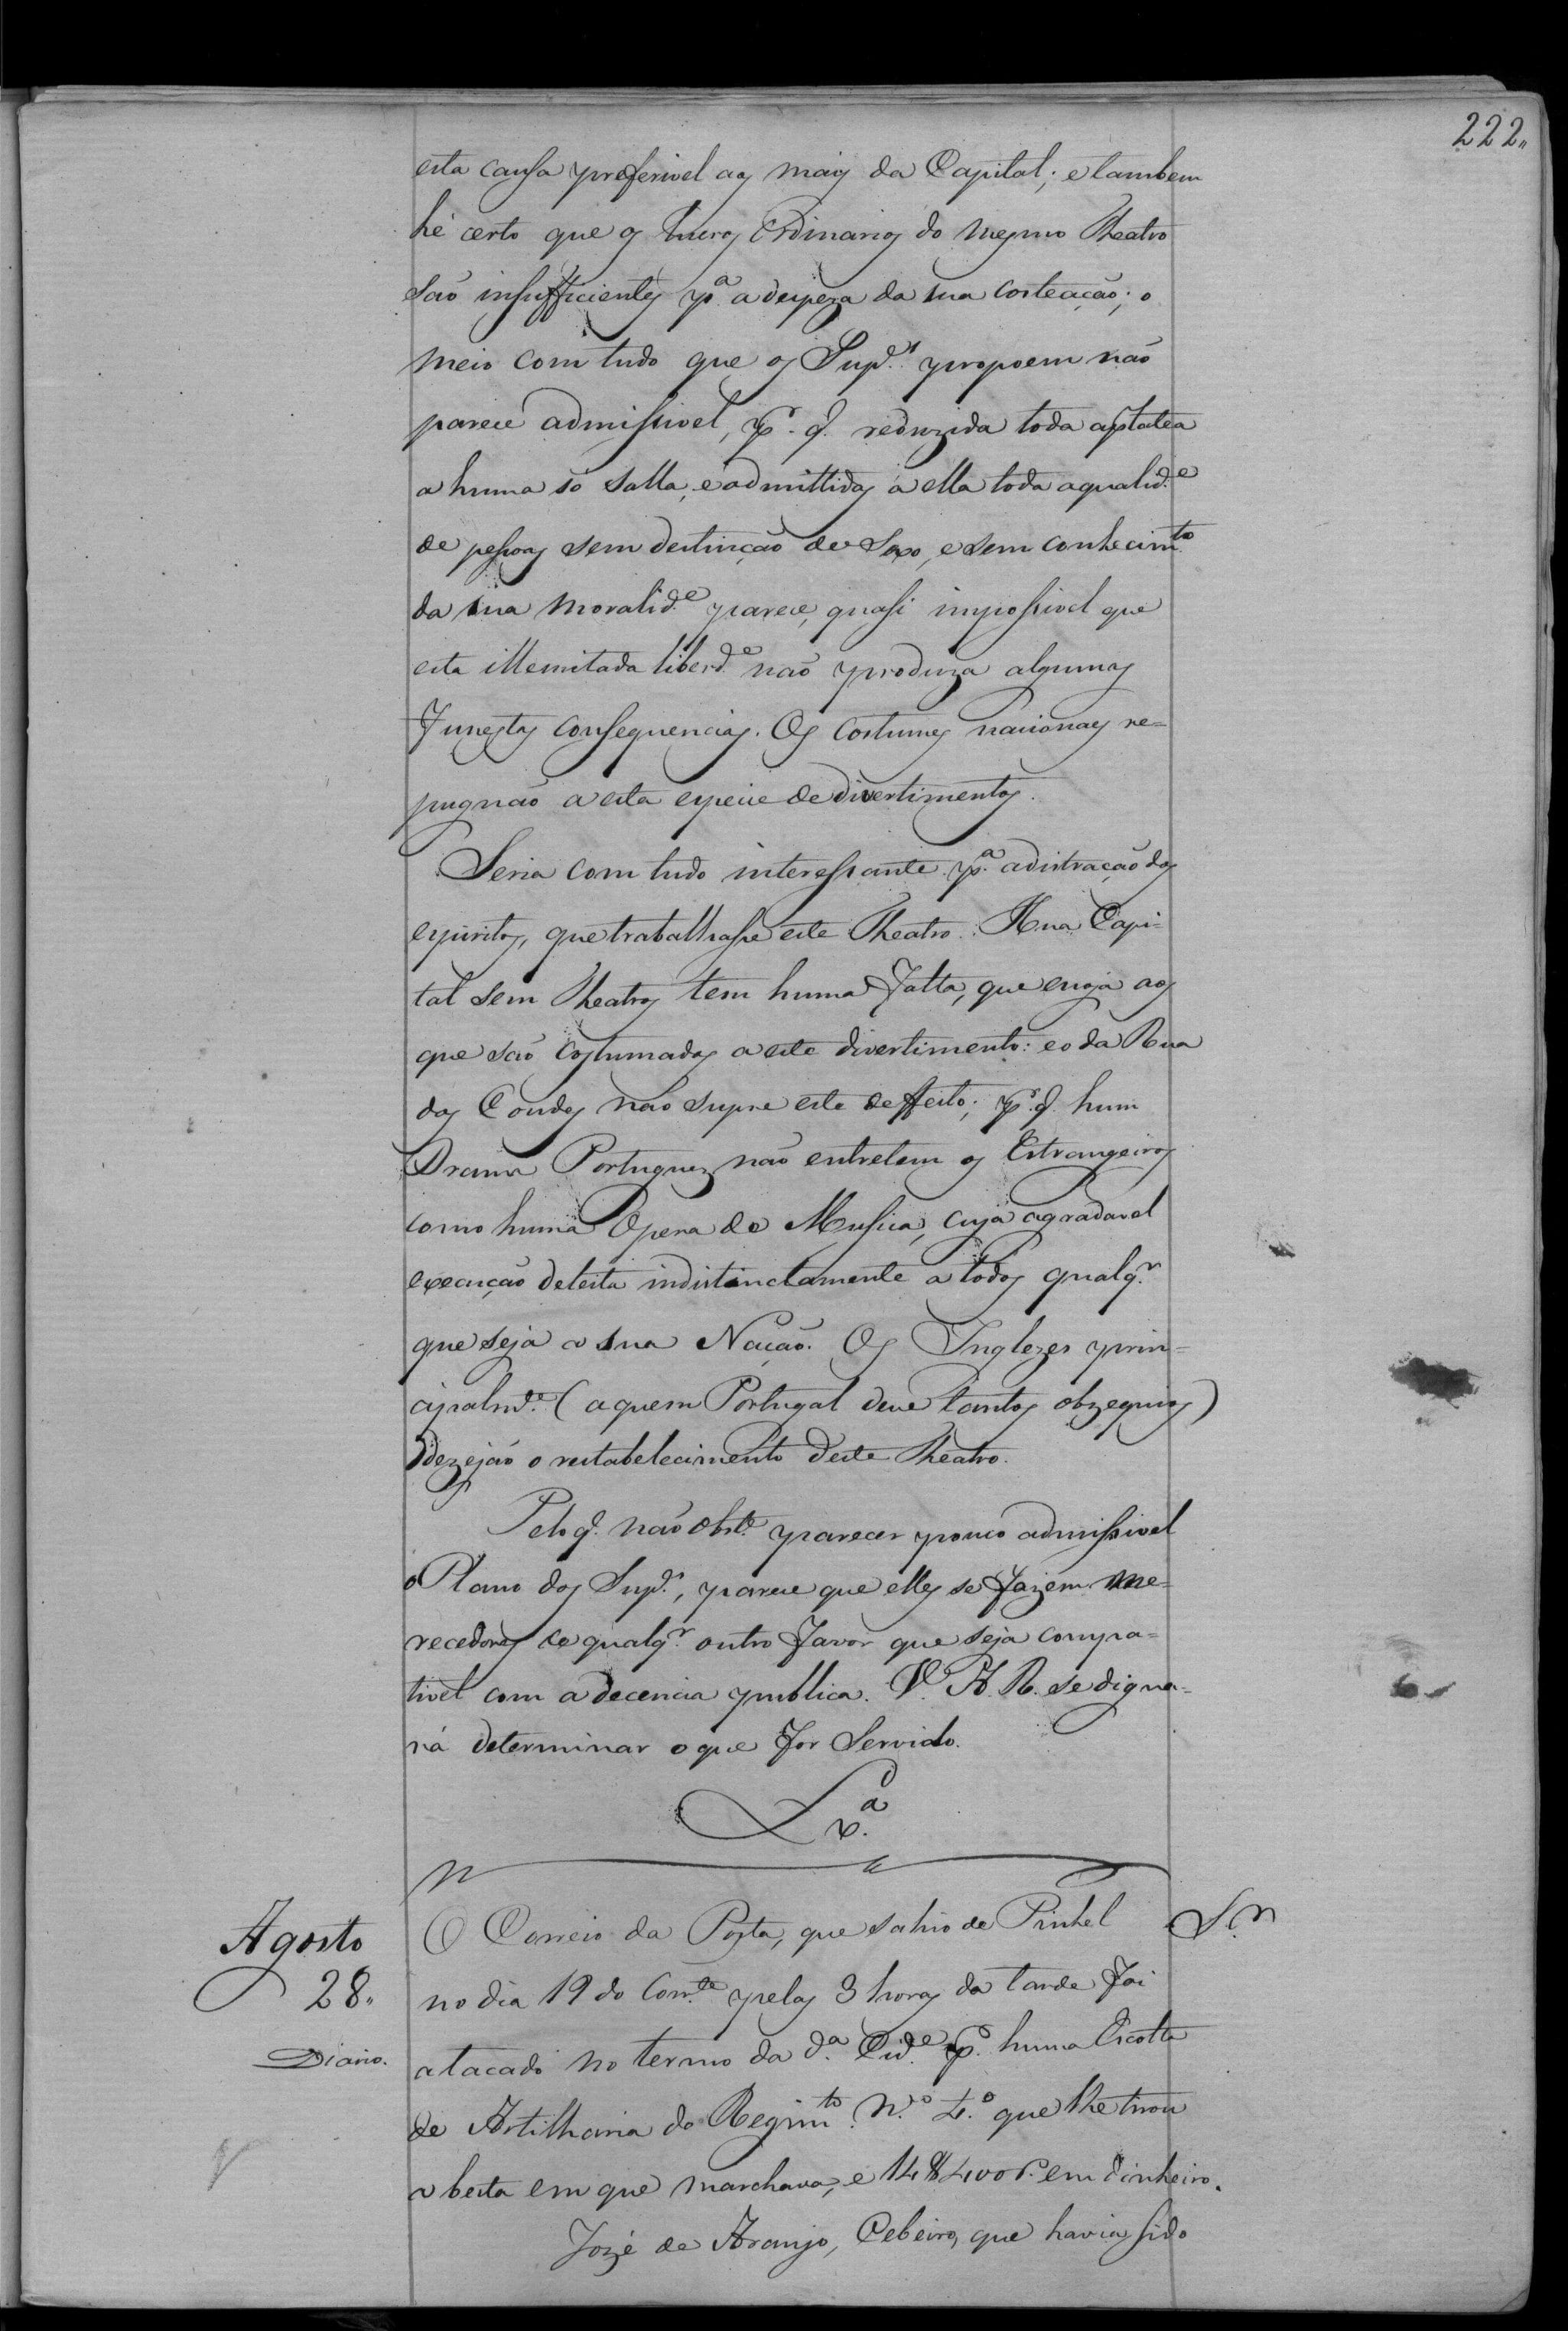 222,,
esta causa preferivel aos mais da Capital; e tambem
hé certo que os lucros Ordinarios do mesmo Theatro
são insufficientes p.ª a despeza da sua costeação; o
meio com tudo que os Sup.es propoem não
parece admissivel, p.r q. reduzida toda a platea
a huma só salla, e admittidas a ella toda a qualid.e
de pessoas sem destinção de Sexo, e sem conhecim.to
da sua moralid.e parece, quasi impossivel que
esta illemitada liberd.e não produza algumas
funestas consequencias. Os costumes nacionaes re=
pugnão a esta especie de divertimentos.
Seria com tudo interessante p.ª a distração dos
espiritos, que trabalhasse este Theatro. Hua Capi=
tal sem Theatros tem huma falta, que enoja aos
que são costumados a este divertimento: e o da Rua
dos Condes não supre este deffeito; p.r q. hum
Drama Portuguez não entretem os Estrangeiros
como huma Opera de Musica, cuja agradavel
execução deleita indistinctamente a todos qualq.r
que seja a sua Nação. Os Inglezes prin=
cipalm.e (a quem Portugal deve tantos obzequios)
dezejão o restabelecimento deste Theatro.
Pelo q. não obst.e parecer pouco admissivel
o Plano dos Sup.es, parece que elles se fazem me=
recedores de qualq.r outro favor que seja compa=
tivel com a decencia publica. V. A. R. se digna=
rá determinar o que for Servido.
L.xª
Agosto
28,,
Diario.
O Correio da Posta, que sahio de Pinhel
no dia 19 do Corr.te pelas 3 horas da tarde foi
atacado no termo da d.ª Cid.e p.r huma Escolta
de Artilharia do Regim.to N.º 4.º que lhe tirou
a besta em que marchava, e 14$400 r. em dinheiro.
Jozé de Araujo, Cebeiro, que havia sido